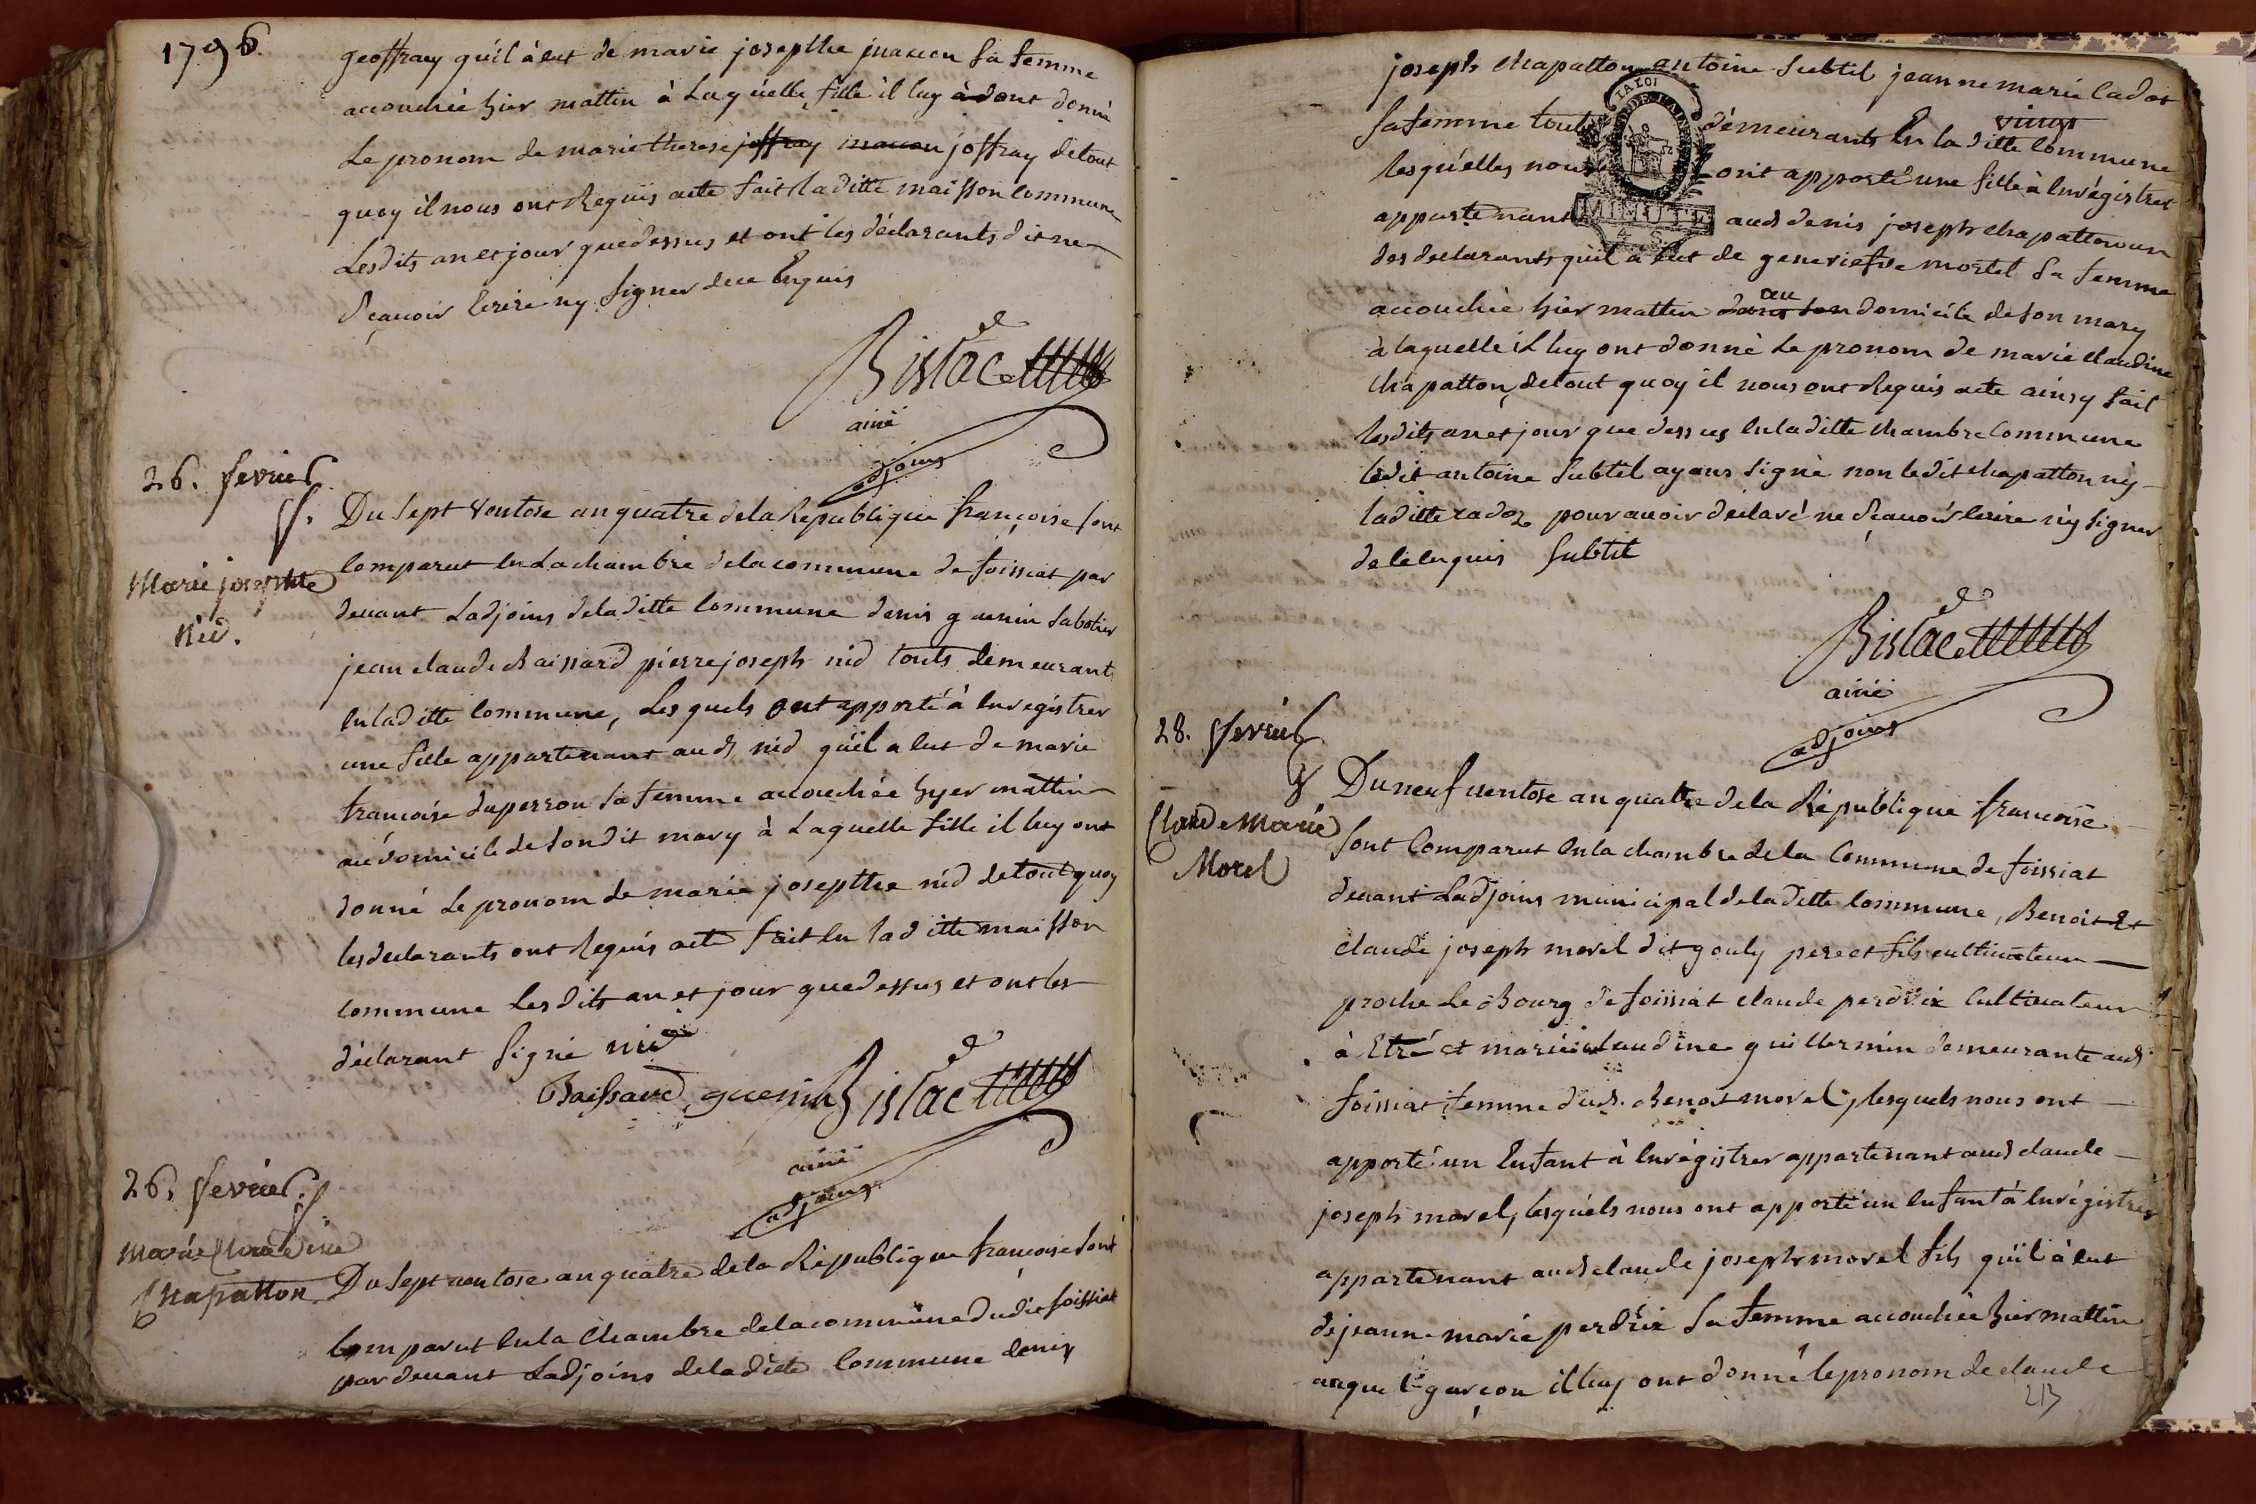 1796.
geoffray qu'il à eut de marie josepthe sa femme
accouchée hier mattin à Laquelle fille il luy à dont donné
Le pronom de marie therese joffray macon joffray de tout
quoy il nous ont Requis acte fait Ladille maisson commune
Lesdits an et jour que dessus et ont les déclarants dit ne
sçauoir Ecrire ny signer de ce Enquis
Bislac
ainé
adjoins
26. fevrier
Marie josepthe
Nid.
Du sept Ventose an quatre dela Republique françoise sont
Comparut En La chambre dela commune de foissiat par
deuant Ladjoins deladitte Commune denis guenin sabotier
jean claude Baissard pierre joseph nid touts demeurant
En laditte Commune, Lesquels ont apporté à Enregistrer
une fille appartenant aud nid qu'il a Eut de marie
francoise duperron sa femme accouchée hyer mattin
au domicile de sondit mary à Laquelle fille il luy ont
donné Le pronom de marie josepthe nid de tout quoy
les declarants ont Requis acte fait En laditte maisson
Commune Lesdits an et jour que dessus et ont les
déclarant signé nid
Baissard guenin Bislac
ainé
adjoins
26. fevrier.
Marie Claudine
Chapatton
Du sept uentose an quatre dela Republique françoise sont
Comparut En la Chambre dela commune dudit foissiat
par deuant Ladjoins deladitte Commune denis
joseph chapatton antoine subtil jeanne marie cadot
sa femme touts demeurants En la ditte Commune
lesquelles nous ont apporté une fille à Enrégistrer
LA LOI
MINUTE
appartenant aud denis joseph chapatton un
des declarants qu'il a Eut de geneviefve mortel sa femme
au
accouchée hier mattin dans son domicile de son mary
à laquelle il luy ont donné Le pronom de marie claudine
Chapatton, de tout quoy il nous ont Requis acte ainsy fait
lesdits an et jour que dessus En laditte chambre Commune
ledit antoine subtil ayans signé non ledit chapatton ny
laditte cadoz pour auoir déclaré ne sçauoir Ecrire ny signer
de ce Enquis subtil
Bislac
ainé
adjoins
28. fevrier
Claude Marie
Morel
Du neuf uentose an quatre de la République francoise
sont Comparut En la chambre dela Commune de foissiat
deuant Ladjoins municipal deladitte Commune, Benoit Et
claude joseph morel dit gouly pere et fils cultiuateur
proche Le Bourg de foissiat claude perdrix Cultiuateur
à Etré et marie claudine guillermin demeurante aud
foissiat femme dud. Benoit morel, lesquels nous ont
apporté un Enfant à Enrégistrer appartenant aud claude
joseph morel, lesquels nous ont apporté un Enfant à Enrégistrer
appartenant aud claude joseph morel fils qu'il à Eut
de jeanne marie perdrix sa femme accouchée hier mattin
auquel garcon il luy ont donné le pronom de claude
213